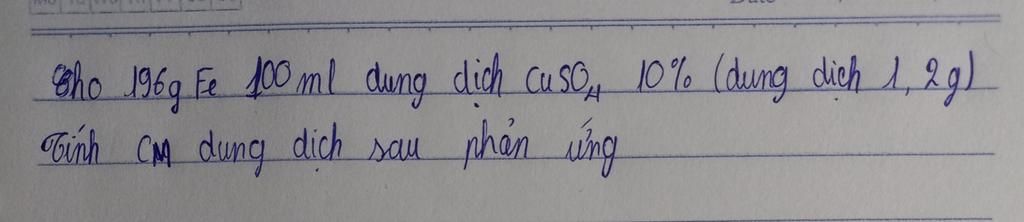 Cho 196g Fe 100ml dung dịch CuSO4 10% (dung dịch 1,2g)
Tính CM dung dịch sau phản ứng